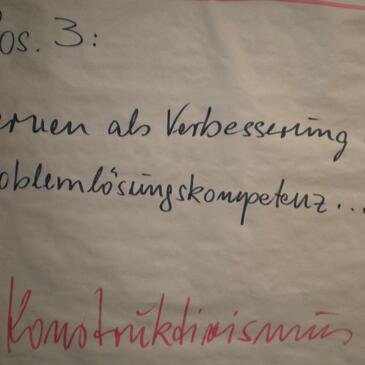 os. 3:
ernen als Verbesserung
oblemlösungskompetenz...
Konstruktivismus